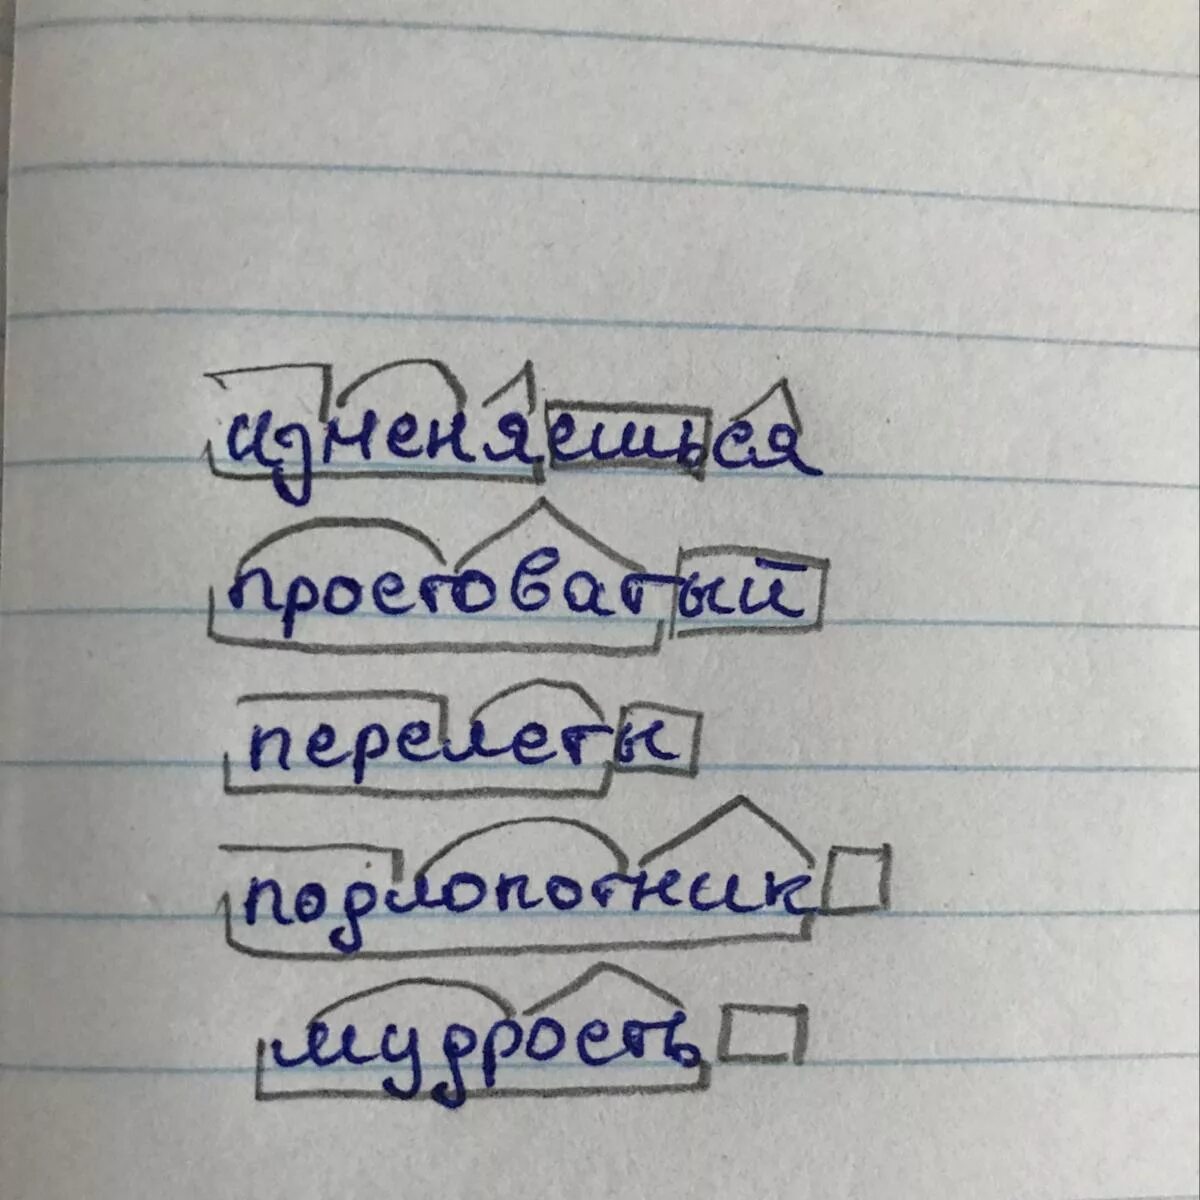 изменяешься
простоватый
перелеты
подлопотник
мудрость